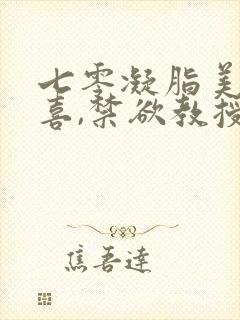 七零凝脂美
喜,禁欲教授
焦吾達